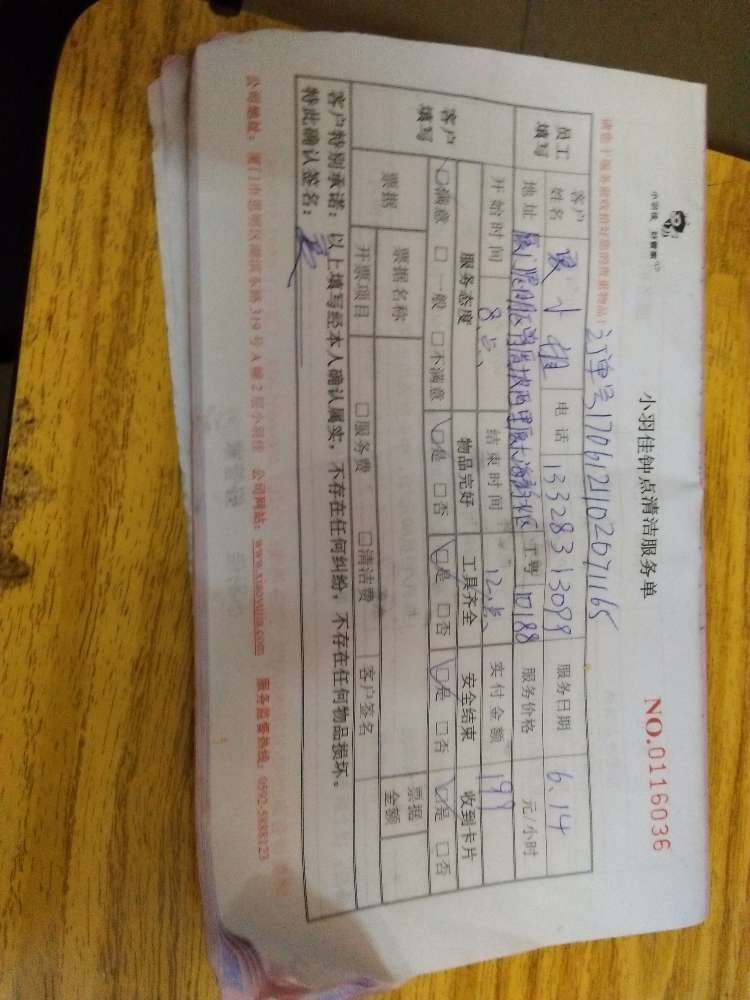 小羽佳 好管家
小羽佳钟点清洁服务单
NO.0116036
订单号1706121102671165
员工填写 客户姓名 小姐 电话 13328313099 服务日期 6.14
地址 工号 10188 服务价格 元/小时
开始时间 8点 结束时间 12点 实付金额 199
客户填写 服务态度 物品完好 工具齐全 安全结束 收到卡片
□满意 □一般 □不满意 □是 □否 □是 □否 □是 □否 □是 □否
票据 票据名称 票据金额
开票项目 □服务费 □清洁费 客户签名
客户特别承诺：以上填写经本人确认属实，不存在任何纠纷，不存在任何物品损坏。
特此确认签名：
公司地址：厦门市思明区湖滨东路319号A幢2层小羽佳 公司网站：www.xiaoyujia.com 服务监督热线：0592-5888123